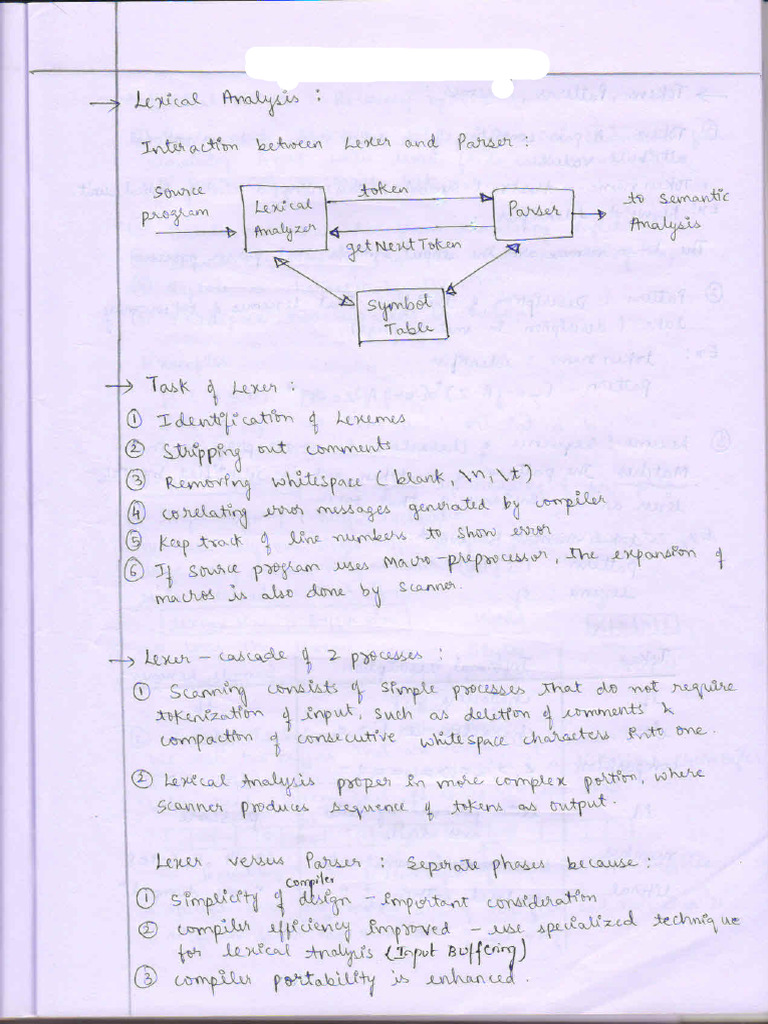 → Lexical Analysis :
Interaction between Lexer and Parser :
Source program
Lexical Analyzer
token
getNextToken
Parser
to Semantic Analysis
Symbol Table
→ Task of Lexer :
① Identification of Lexemes
② Stripping out comments
③ Removing whitespace (blank, \n, \t)
④ corelating error messages generated by compiler
⑤ Keep track of line numbers to show error
⑥ If source program uses Macro-preprocessor, The expansion of
macros is also done by scanner.
→ Lexer - cascade of 2 processes :
① Scanning consists of simple processes that do not require
tokenization of input, such as deletion of comments &
compaction of consecutive whitespace characters into one.
② Lexical Analysis proper in more complex portion, where
scanner produces sequence of tokens as output.
Lexer versus Parser : Seperate phases because :
① Simplicity of compiler design - important consideration
② compiler efficiency improved - use specialized technique
for lexical Analysis (Input Buffering)
③ compiler portability is enhanced.